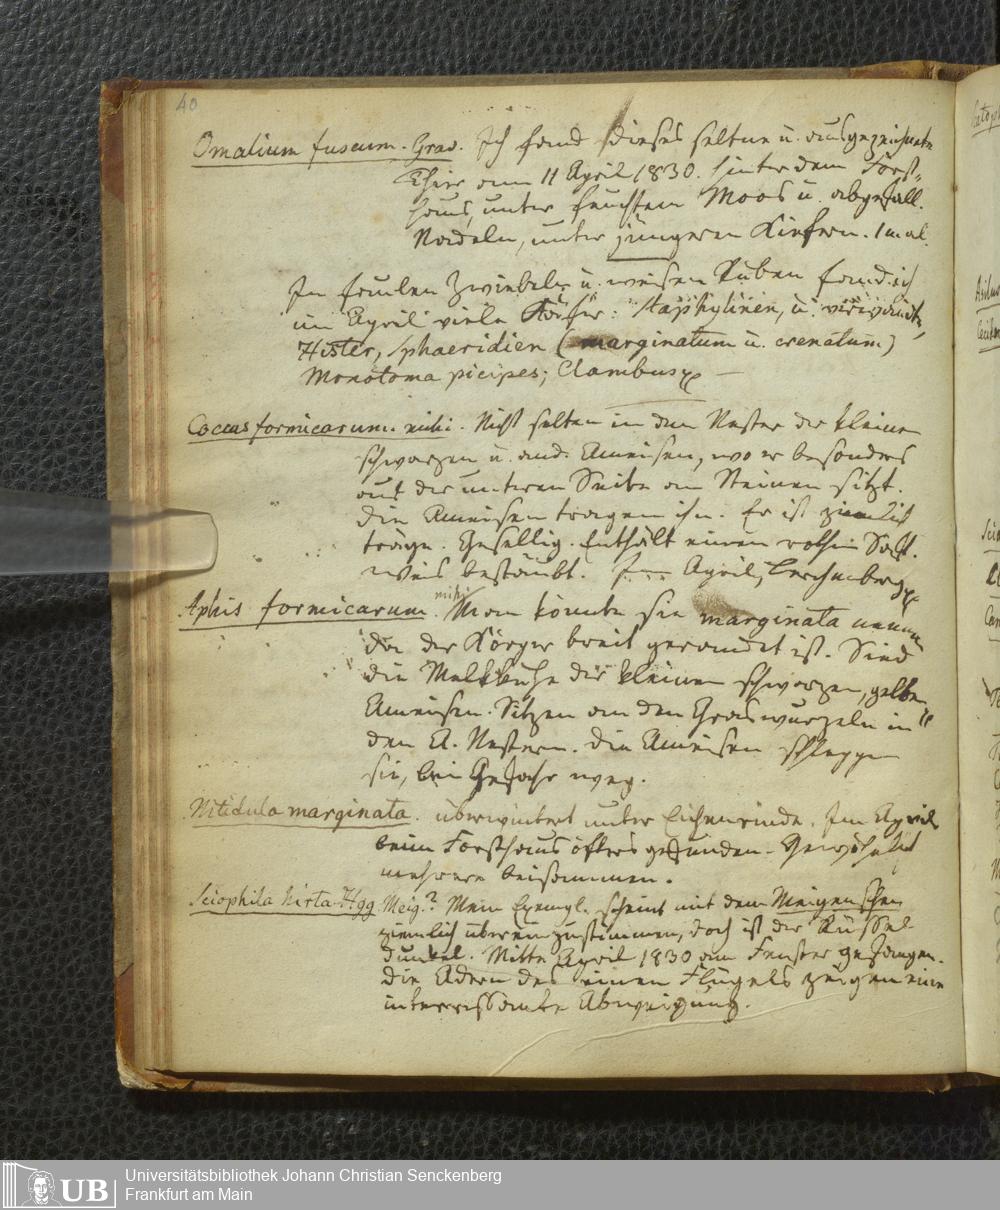 40
Omalium fuscum. Grav. Ich fand dieses seltne u. ausgezeichnete
Thier am 11 April 1830. hinter dem Forst-
haus, unter feuchtem Moos u. abgefall.
Nadeln, unter jüngeren Kiefern. 1 mal.
In faulen Zwiebeln u. weisen Rüben fand ich
im April viele Käfer: Staphylinen, u. verwandte,
Hister, Sphaeridien (marginatum u. crenatum)
Monotoma picipes; Clambus
Coccus formicarum. mihi. Nicht selten in den Nester der kleinen
schwarzen u. and. Ameisen, wo er besonders
auf der unteren Seite an Steinen sitzt.
Die Ameisen tragen ihn. Er ist ziemlich
träge. Gesellig. Enthält einen rothen Saft.
weis bestäubt. Im April, Lerchenberg
Aphis formicarum. mihi Man könnte sie marginata nennen
da der Körper breit gerandet ist. Sind
die Melkkühe der kleinen schwarzen, gelben
Ameisen. Sitzen an den Graswurzeln in
den A. Nestern. Die Ameisen schleppen
sie, bei Gefahr weg.
Nitidula marginata. überwintert unter Eichenrinde. Im April
beim Forsthaus öfters gefunden. Gewöhnlich
mehrere beisammen.
Sciophila hirta Hgg Meig.? Mein Exempl. scheint mit dem Meigenschen
ziemlich übereinzustimmen, doch ist der Rüssel
dunkel. Mitte April 1830 am Fenster gefangen.
Die Adern des einen Flügels zeigen eine
interessante Abweichung.
UB
Universitätsbibliothek Johann Christian Senckenberg
Frankfurt am Main